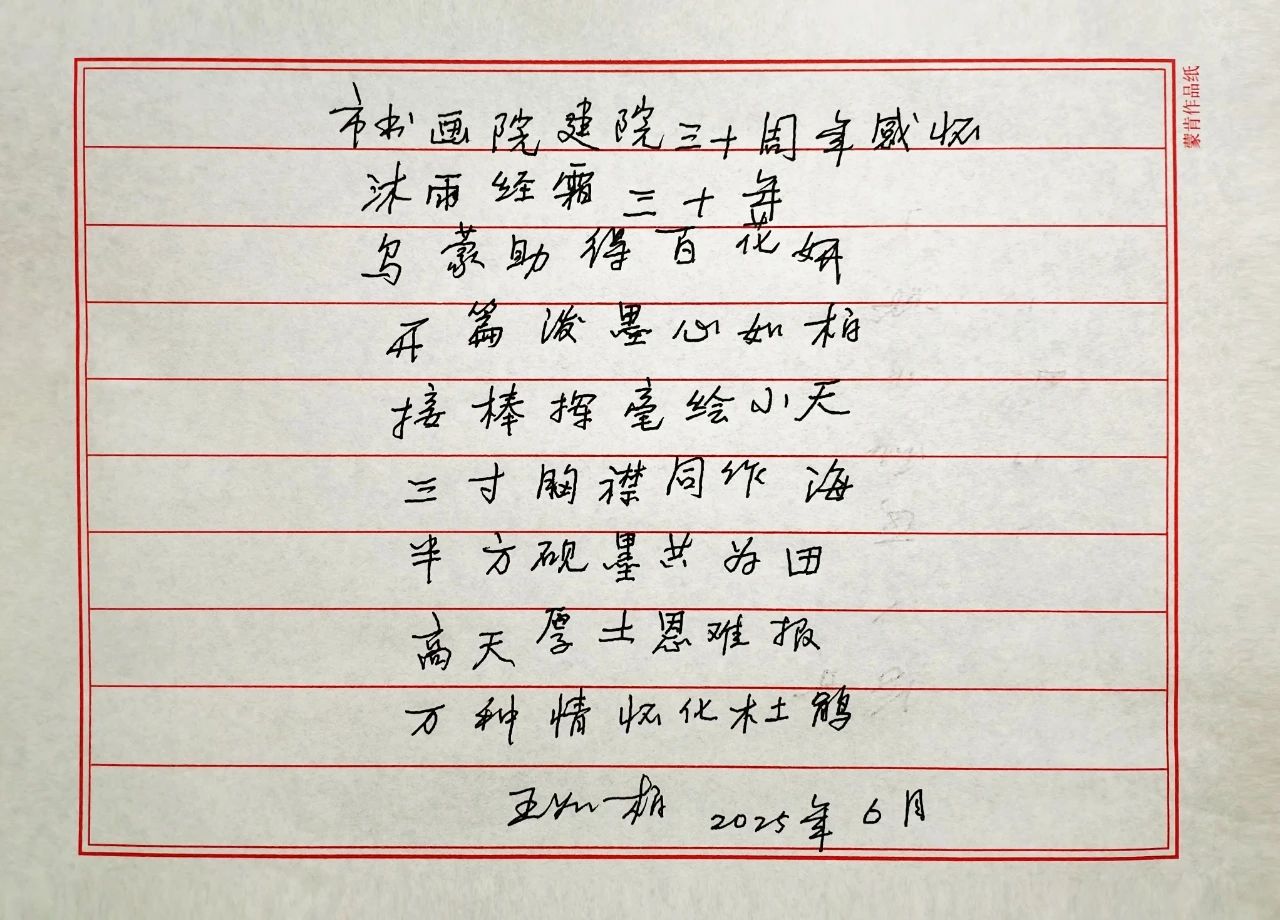 市书画院建院三十周年感怀
沐雨经霜三十年
乌蒙助得百花妍
开篇泼墨心如柏
接棒挥毫绘小天
三寸胸襟同作海
半方砚墨共为田
高天厚土恩难报
万种情怀化杜鹃
王如柏 2025年6月
蒙肯作品纸